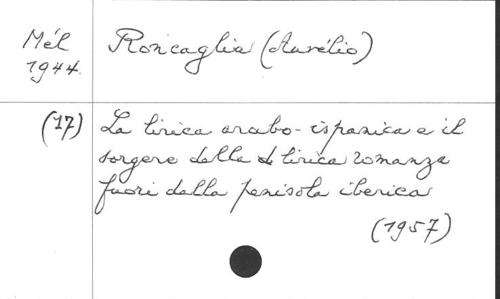 Mél Roncaglia (Aurélio)
1944.
(17) La lirica arabo-ispanica e il
sorgere della lirica romanza
fuori della penisola iberica
(1957)